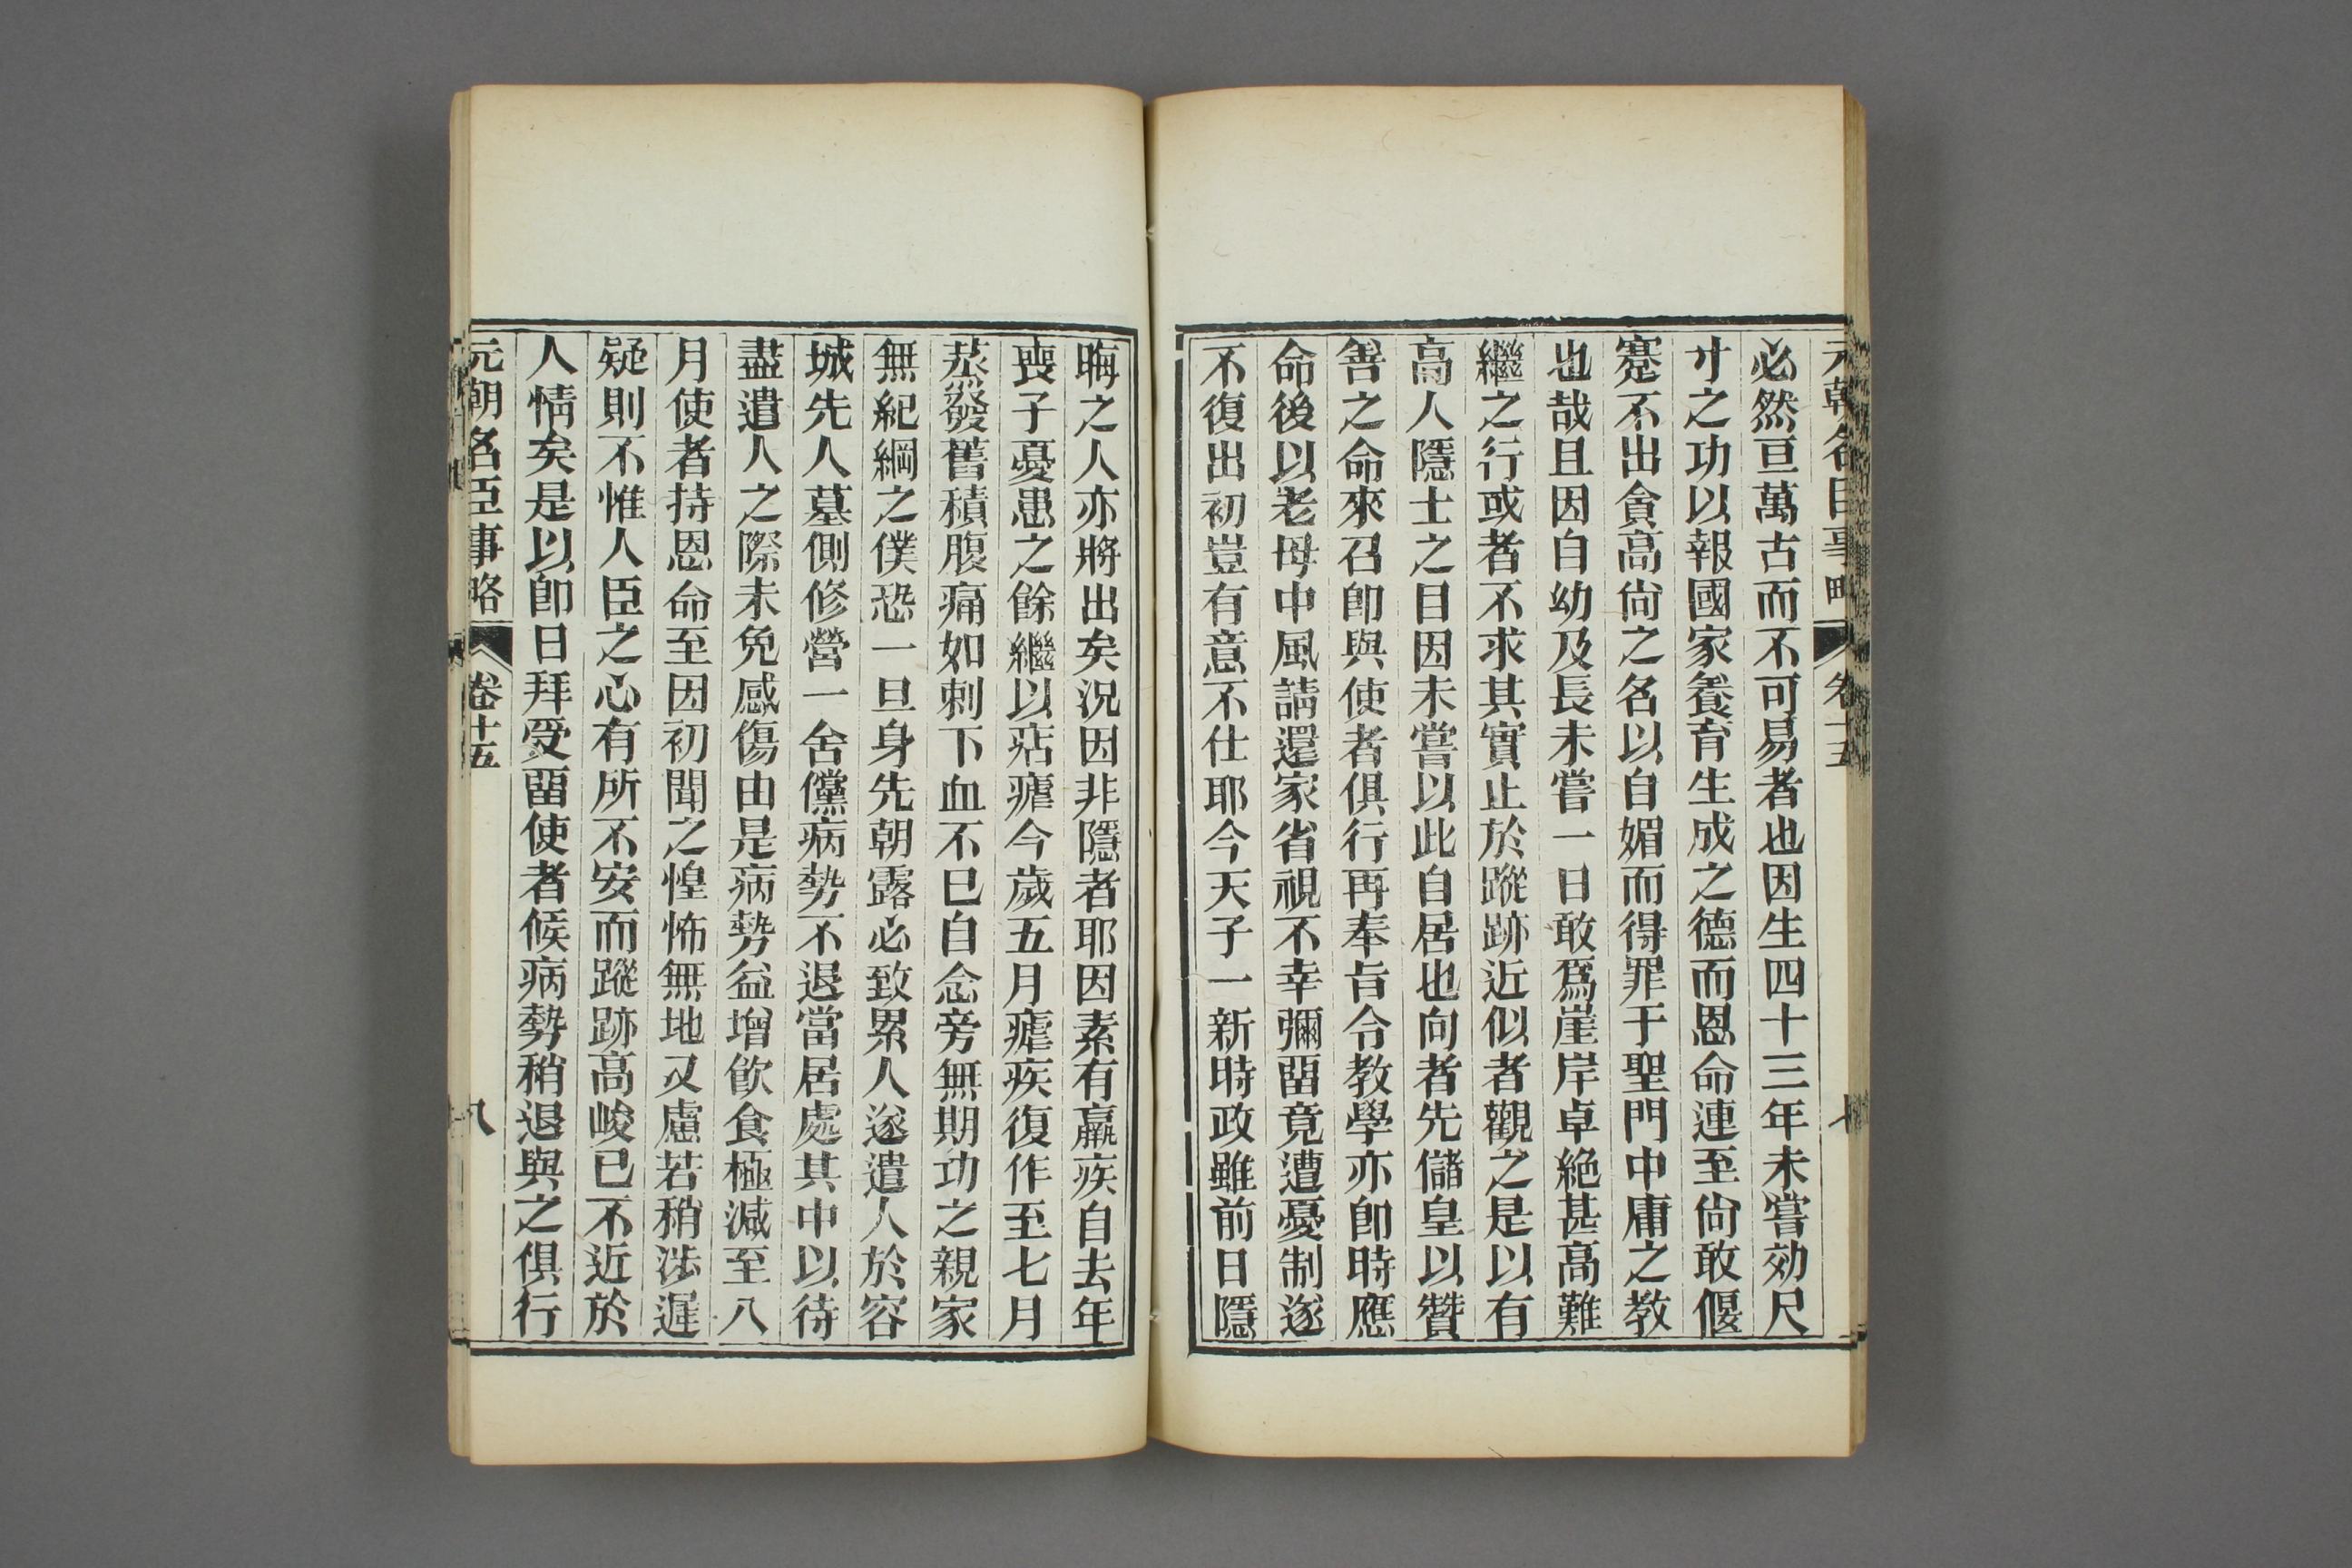 元朝名臣事略 卷十五 七
必然亘萬古而不可易者也因生四十三年未嘗効尺
寸之功以報國家養育生成之德而恩命連至尙敢偃
蹇不出貪高尙之名以自媚而得罪于聖門中庸之教
也哉且因自幼及長未嘗一日敢爲崖岸卓絶甚高難
繼之行或者不求其實止於蹤跡近似者觀之是以有
高人隱士之目因未嘗以此自居也向者先儲皇以贊
善之命來召卽與使者俱行再奉旨令教學亦卽時應
命後以老母中風請還家省視不幸彌畱竟遭憂制遂
不復出初豈有意不仕耶今天子一新時政雖前日隱
晦之人亦將出矣況因非隱者耶因素有羸疾自去年
喪子憂患之餘繼以痁瘧今歲五月瘧疾復作至七月
蒸發舊積腹痛如刺下血不已自念旁無期功之親家
無紀綱之僕恐一旦身先朝露必致累人遂遣人於容
城先人墓側修營一舍儻病勢不退當居處其中以待
盡遣人之際未免感傷由是病勢益增飮食極減至八
月使者持恩命至因初聞之惶怖無地又慮若稍涉遲
疑則不惟人臣之心有所不安而蹤跡高峻已不近於
人情矣是以卽日拜受畱使者候病勢稍退與之俱行
元朝名臣事略 卷十五 八